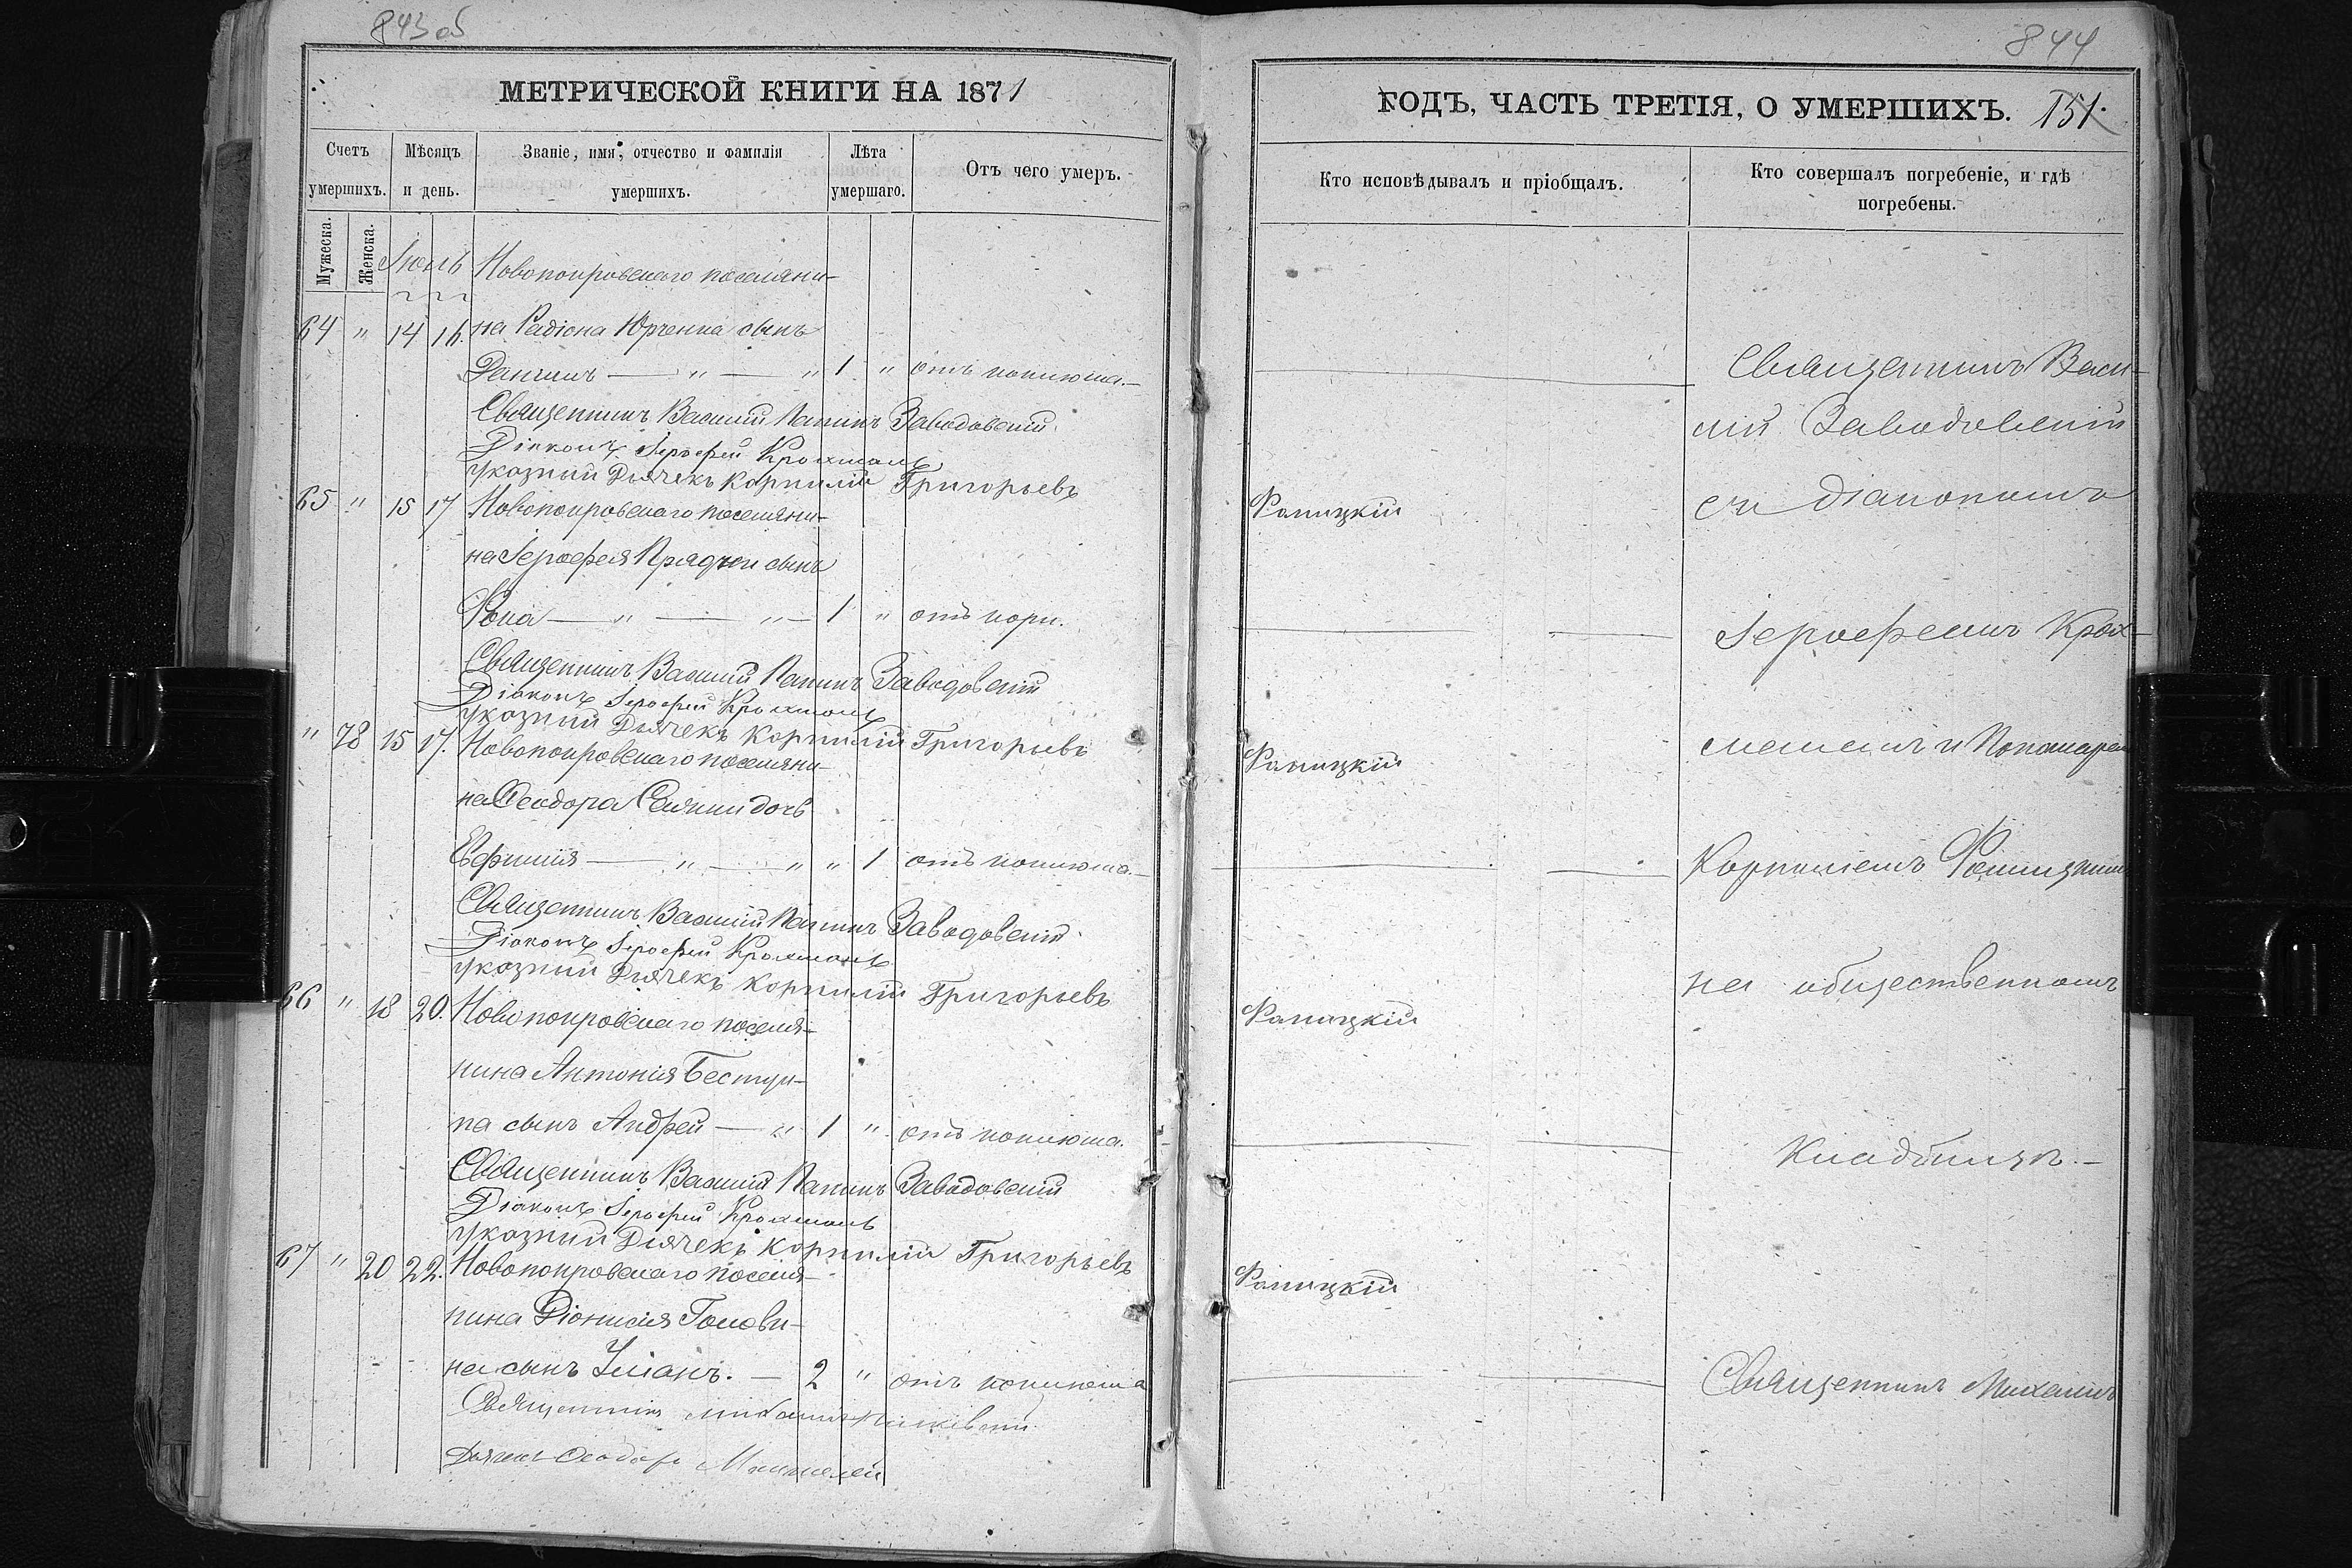 843 об
МЕТРИЧЕСКОЙ КНИГИ НА 1871
Счетъ умершихъ.
Мужеска.
Женска.
Мѣсяцъ и день.
Званіе, имя, отчество и фамилія умершихъ.
Лѣта умершаго.
Отъ чего умеръ.
Іюль
Новопокровскаго поселяни-
64 " 14 16. на Радіона Юрченка сынъ
Даніилъ — " — " 1 " отъ коклюша.—
Священникъ Василій Заводовскій
Діаконъ Іерофей Крохмаль
Указный Дьячекъ Корнилій Григорьевъ
65 " 15 17 Новопокровскаго поселяни-
на Іерофея Прядки сынъ
Фока — " — " — 1 " отъ кори.
Священникъ Василій Заводовскій
Діаконъ Іерофей Крохмаль
Указный Дьячекъ Корнилій Григорьевъ
" 78 15 17. Новопокровскаго поселяни-
на Ѳеодора дочь
Евфимія — " — " " 1 отъ коклюша.—
Священникъ Василій Заводовскій
Діаконъ Іерофей Крохмаль
Указный Дьячекъ Корнилій Григорьевъ
66 " 18 20. Новопокровскаго поселя-
нина Антонія
на сынъ Андрей — " 1 " отъ коклюша.
Священникъ Василій Заводовскій
Діаконъ Іерофей Крохмаль
Указный Дьячекъ Корнилій Григорьевъ
67 " 20 22. Новопокровскаго поселя-
нина Діонисія Голови-
на сынъ Іуліанъ. — 2 " отъ коклюша
Священникъ Михаилъ
Дьячекъ Ѳеодоръ
844
ГОДЪ, ЧАСТЬ ТРЕТІЯ, О УМЕРШИХЪ. 151.
Кто исповѣдывалъ и пріобщалъ.
Кто совершалъ погребеніе, и гдѣ погребены.
Священникъ Васи-
лій Заводовскій
съ діакономъ
Фаницкій
Іерофеемъ Крох-
малемъ и Пономарем
Фаницкій
Корниліемъ Фаницким
на общественномъ
Фаницкій
кладбищѣ.—
Фаницкій
Священникъ Михаилъ